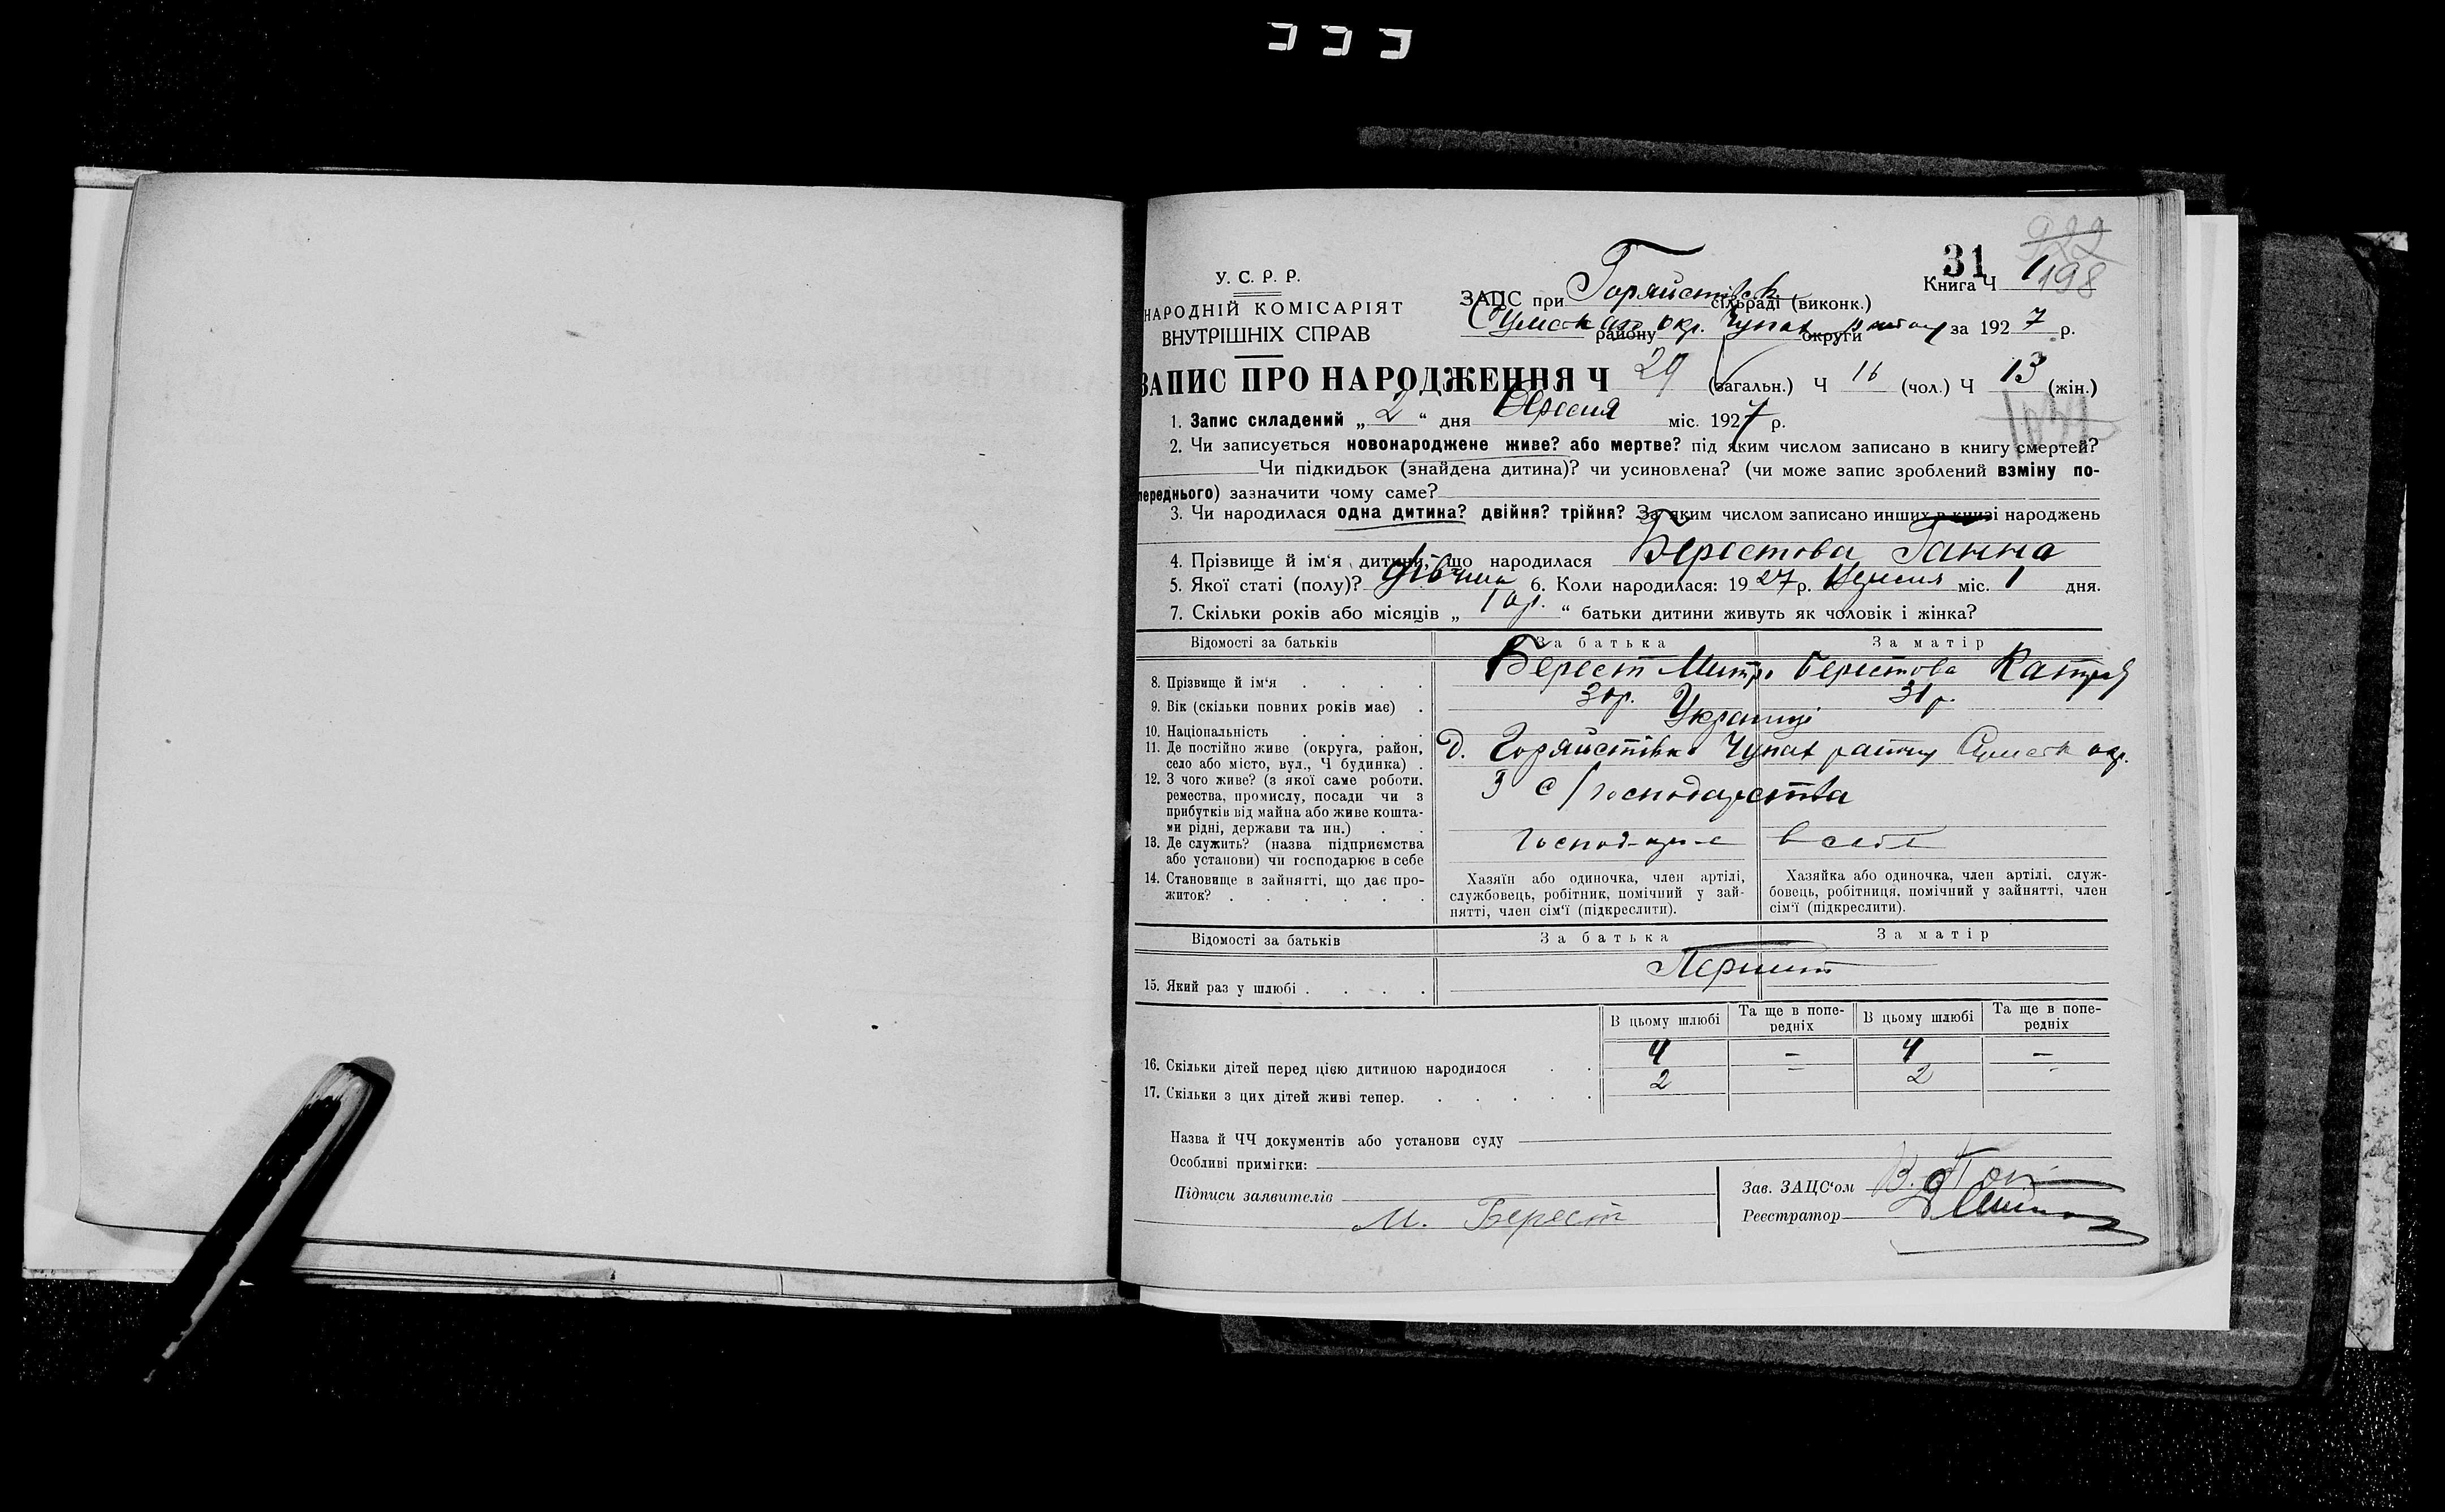 31
922
198
У. С. Р. Р.
НАРОДНІЙ КОМІСАРІЯТ
ВНУТРІШНІХ СПРАВ
Книга Ч 1
ЗАЦС при Горяйстівск. сільраді (виконк.)
Сумск окр. району округи за 1927 р.
ЗАПИС ПРО НАРОДЖЕННЯ Ч 29 (загальн.) Ч 16 (чол.) Ч 13 (жін.)
1. Запис складений „ 2 “ дня Вресня міс. 1927 р.
2. Чи записується новонароджене живе? або мертве? під яким числом записано в книгу смертей?
Чи підкидьок (знайдена дитина)? чи усиновлена? (чи може запис зроблений взміну по-
переднього) зазначити чому саме?
3. Чи народилася одна дитина? двійня? трійня? За яким числом записано инших в книзі народжень
4. Прізвище й ім‘я дитини, що народилася Берестова Ганна
5. Якої статі (полу)? дівчина 6. Коли народилася: 1927 р. міс. 1 дня.
7. Скільки років або місяців „ 10 р. “ батьки дитини живуть як чоловік і жінка?
Відомості за батьків За батька За матір
8. Прізвище й ім‘я Берест Митро Берестова Катря
9. Вік (скільки повних років має) 30 р. 31 р.
10. Національність Українці
11. Де постійно живе (округа, район, село або місто, вул., Ч будинка) д. Горяйстівка Чупах району Сумск окр.
12. З чого живе? (з якої саме роботи, ремества, промислу, посади чи з прибутків від майна або живе кошта-ми рідні, держави та ин.) З с/господарства
13. Де служить? (назва підприємства або установи) чи господарює в себе в себе
14. Становище в зайнятті, що дає про-житок? Хазяїн або одиночка, член артілі, службовець, робітник, помічний у зай-нятті, член сім‘ї (підкреслити). Хазяйка або одиночка, член артілі, служ-бовець, робітниця, помічний у зайнятті, член сім‘ї (підкреслити).
Відомості за батьків За батька За матір
15. Який раз у шлюбі
В цьому шлюбі Та ще в попе-редніх В цьому шлюбі Та ще в попе-редніх
16. Скільки дітей перед цією дитиною народилося 4 – 4 –
17. Скільки з цих дітей живі тепер. 2 – 2 -
Назва й ЧЧ документів або установи суду
Особливі примітки:
Підписи заявителів
М. Берест
Зав. ЗАЦС‘ом
Реєстратор